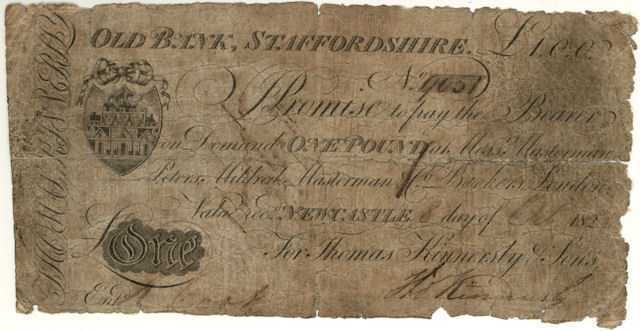 OLD BANK, STAFFORDSHIRE. £1.0.0.
No. 9051
I Promise to pay the Bearer
on Demand ONE POUND at Messrs. Masterman
Peters, Mildred, Masterman & Co. Bankers, London
Value recd. NEWCASTLE day of 182
£One For Thomas Kinnersly & Sons,
Entd. Tho Kinnersly